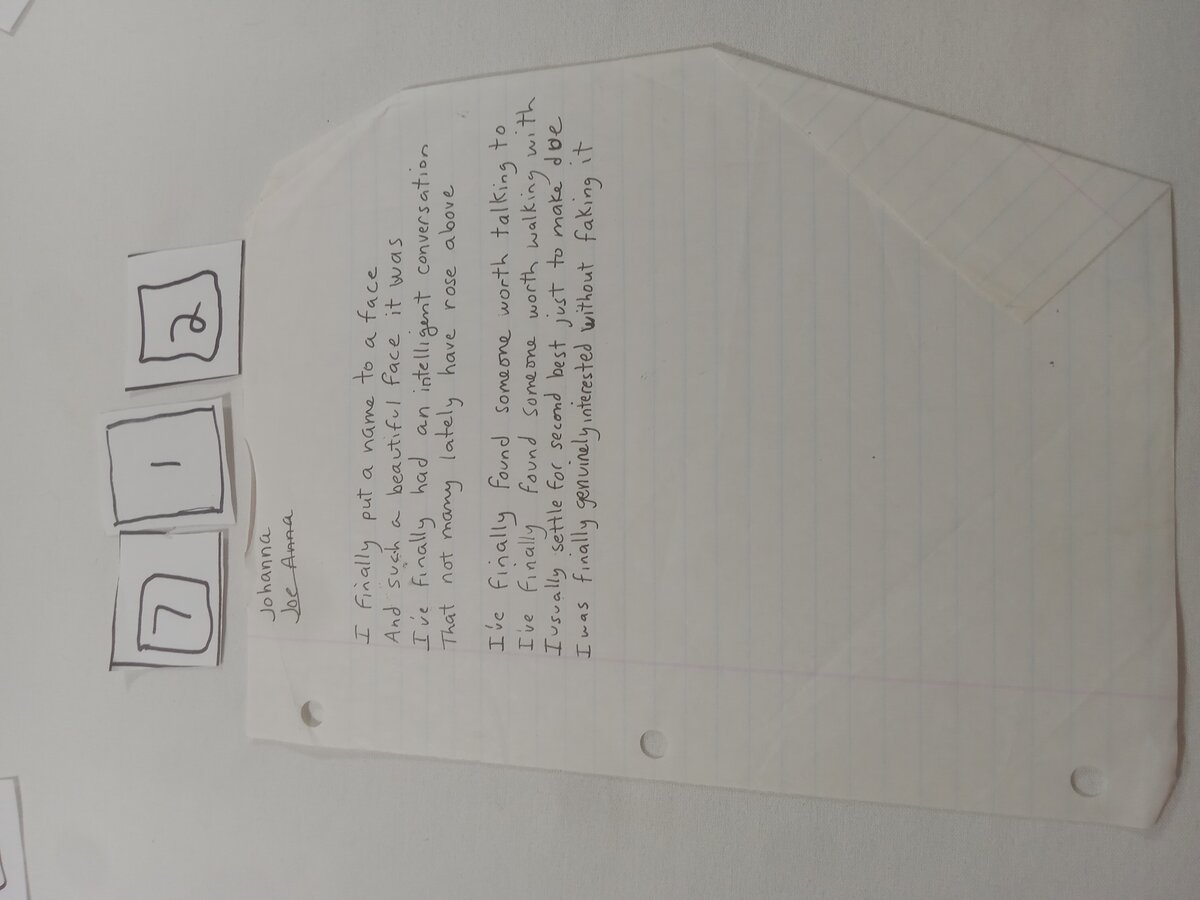 7 1 2
Johanna
Joe Anna
I finally put a name to a face
And such a beautiful face it was
I've finally had an intelligent conversation
That not many lately have rose above
I've finally found someone worth talking to
I've finally found someone worth walking with
I usually settle for second best just to make doe
I was finally genuinely interested without faking it